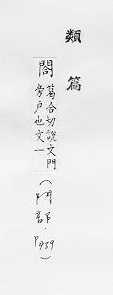 類篇
閤
葛合切說文門
旁戶也文一